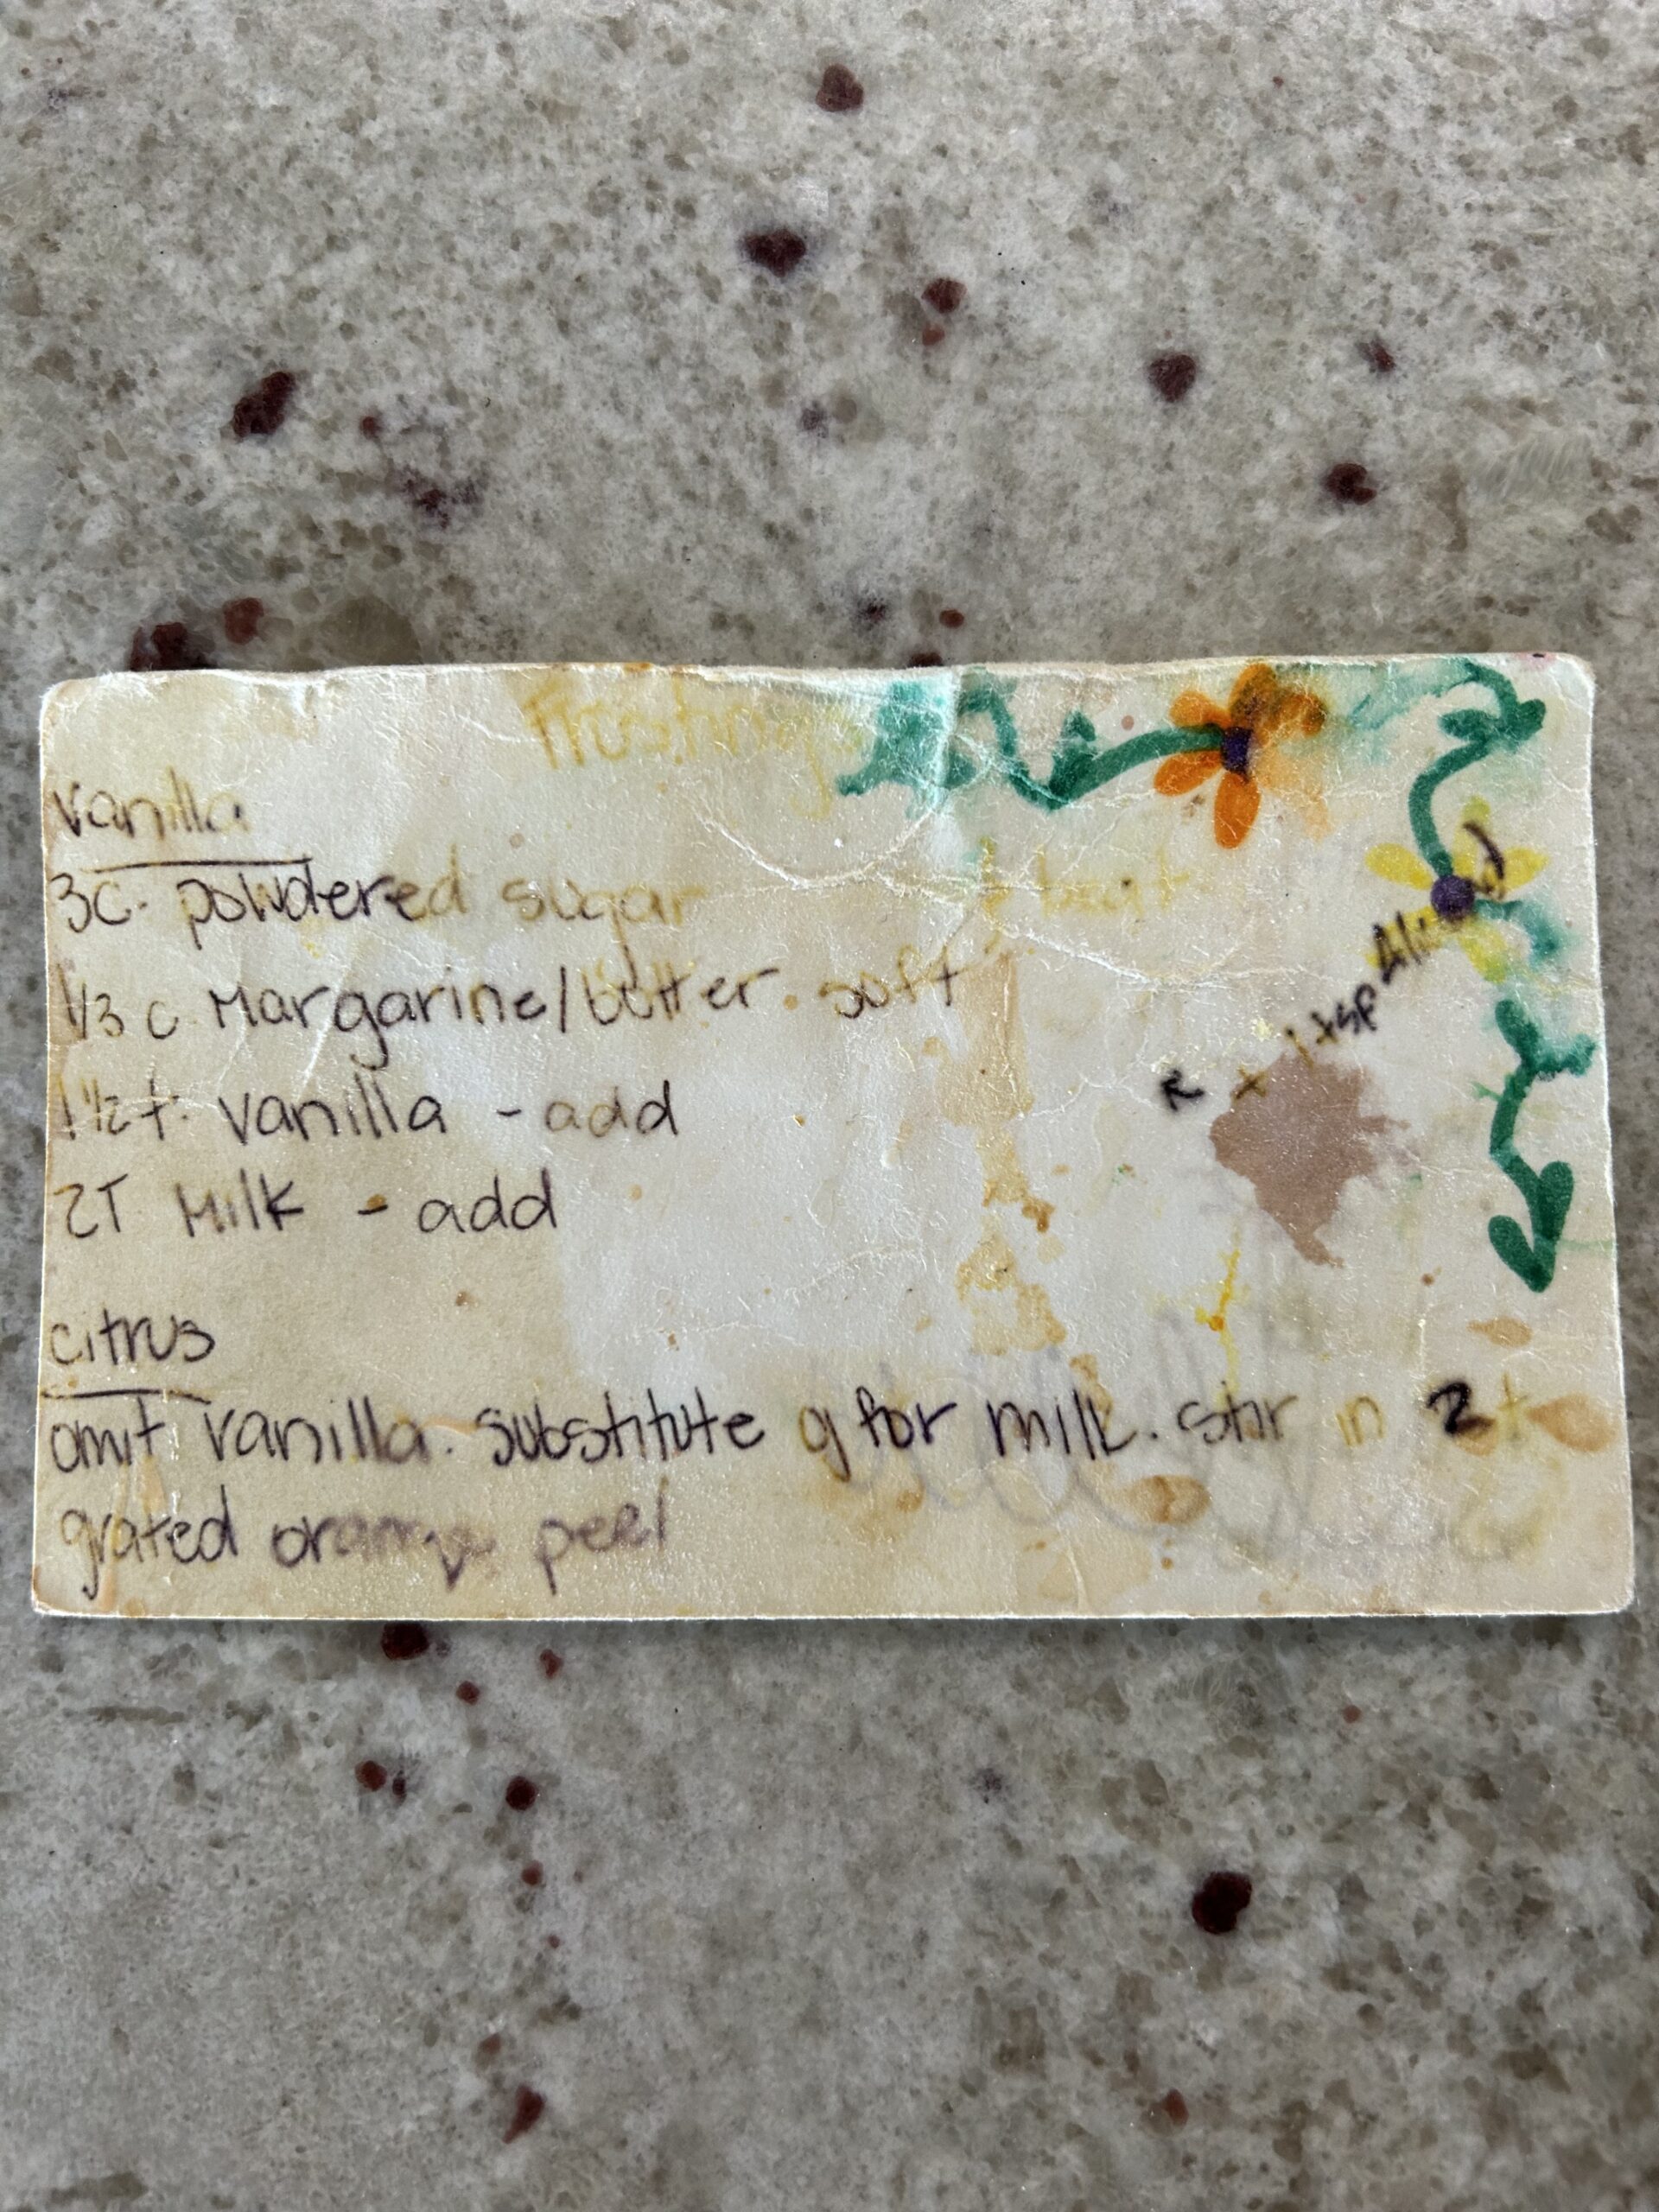 Frosting
vanilla
3c. powdered sugar } beat
1/3 c. Margarine/butter. soft
+ 1 tsp
1 1/2 t. vanilla - add
2T Milk - add
citrus
omit vanilla. substitute g for milk. stir in 2 t
grated orange peel